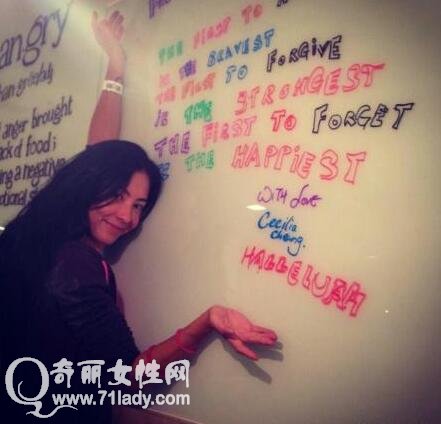 angry
anger brought
ack of food;
ng a negative
otional s
THE FIRST TO A
IS THE BRAVEST
THE FIRST TO FORGIVE
IS THE STRONGEST
THE FIRST TO FORGET
IS THE HAPPIEST
WITH Love
Cecilia
cheng.
HALLELUJAH
奇丽女性网
www.71lady.com